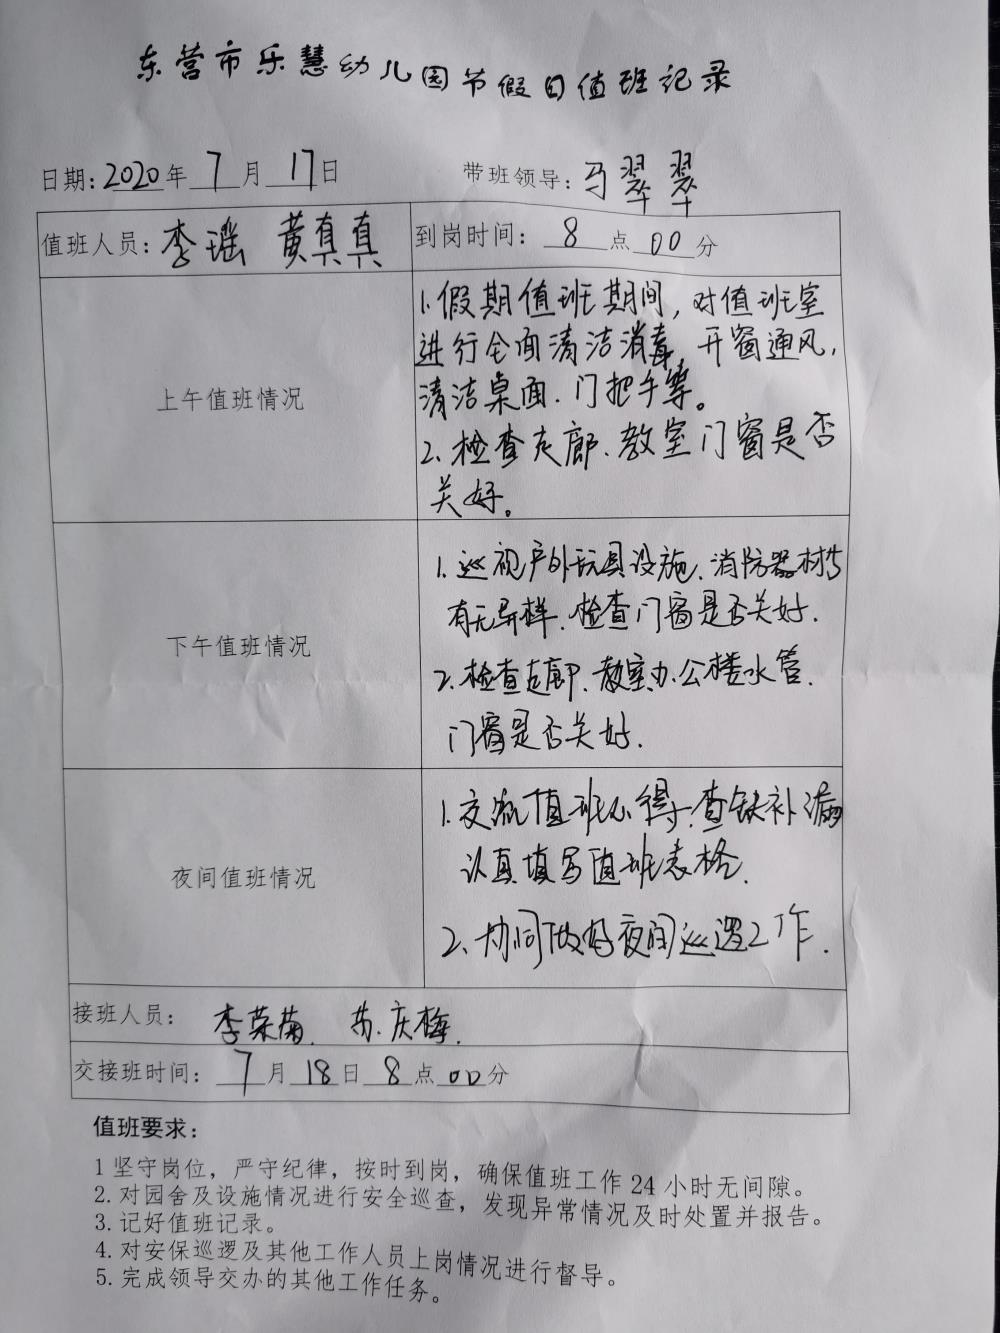 东营市乐慧幼儿园节假日值班记录
日期:2020年7月17日 带班领导:马翠翠
值班人员:李瑶 黄真真 到岗时间:8点00分
上午值班情况
1.假期值班期间,对值班室
进行全面清洁消毒,开窗通风,
清洁桌面、门把手等。
2.检查走廊、教室门窗是否
关好。
下午值班情况
1.巡视户外玩具设施、消防器材
有无异样、检查门窗是否关好.
2.检查走廊、教室、办公楼水管、
门窗是否关好.
夜间值班情况
1.交流值班心得、查缺补漏
认真填写值班表格.
2、协同做好夜间巡逻工作.
接班人员: 李荣菊、苏庆梅.
交接班时间:7月18日8点00分
值班要求:
1 坚守岗位,严守纪律,按时到岗,确保值班工作24小时无间隙。
2. 对园舍及设施情况进行安全巡查,发现异常情况及时处置并报告。
3. 记好值班记录。
4. 对安保巡逻及其他工作人员上岗情况进行督导。
5. 完成领导交办的其他工作任务。